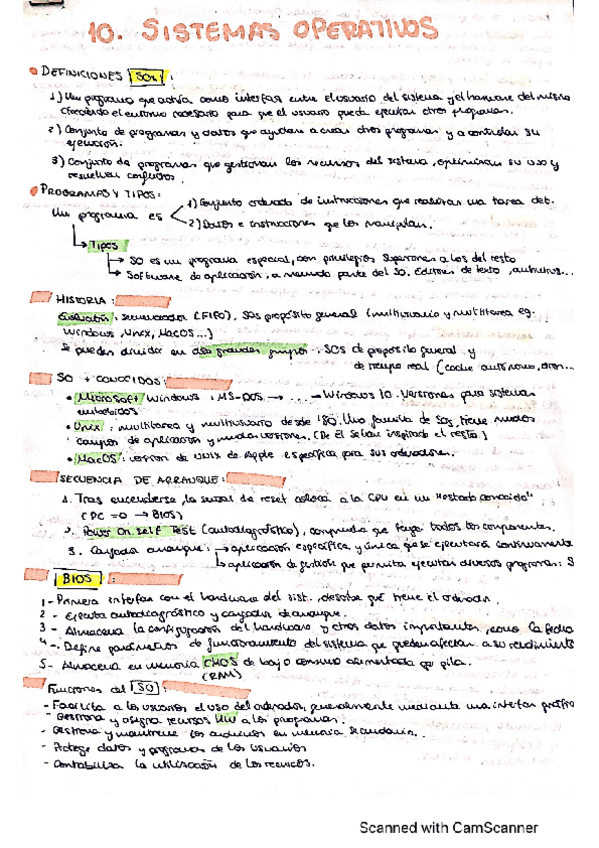 10. SISTEMAS OPERATIVOS
DEFINICIONES SOs:
1) Un programa que actúa como interfaz entre el usuario del sistema y el hardware del mismo
ofreciendo el entorno necesario para que el usuario pueda ejecutar otros programas.
2) Conjunto de programas y datos que ayudan a crear otros programas y a controlar su
ejecución.
3) Conjunto de programas que gestionan los recursos del sistema, optimizan su uso y
resuelven conflictos.
PROGRAMAS Y TIPOS:
Un programa es
1) Conjunto ordenado de instrucciones que realizan una tarea det.
2) Datos e instrucciones que los manipulan.
Tipos
SO es un programa especial, con privilegios superiores a los del resto
Software de aplicación, a menudo parte del SO. Editores de texto, antivirus...
HISTORIA:
Evolución: secuenciador (FIFO), SOs propósito general (multiusuario y multitarea eg.
Windows, Unix, MacOS...)
Se pueden dividir en dos grandes grupos: SOs de propósito general y
de tiempo real (coche autónomo, dron...
SO + CONOCIDOS:
Microsoft Windows: MS-DOS → ... → Windows 10. Versiones para sistemas
embebidos
Unix: multitarea y multiusuario desde '80. Una familia de SOs, tiene muchos
campos de aplicación y muchas versiones. (De él se han inspirado el resto)
MacOS: versión de Unix de Apple específica para sus ordenadores.
SECUENCIA DE ARRANQUE:
1. Tras encenderse, la señal de reset coloca a la CPU en un "estado conocido"
(PC=0 → BIOS)
2. Power On Self Test (autodiagnóstico), comprueba que haya todos los componentes.
3. Cargador arranque: → aplicación específica y única que se ejecutará continuamente
→ aplicación de gestión que permita ejecutar diversos programas: S
BIOS:
1- Primera interfaz con el hardware del sist., describe qué tiene el ordenador.
2 - Ejecuta autodiagnóstico y cargador de arranque.
3 - Almacena la configuración del hardware y otros datos importantes, como la fecha
4- Define parámetros de funcionamiento del sistema que pueden afectar a su rendimiento
5- Almacena en memoria CMOS de bajo consumo alimentada por pila.
(RAM)
Funciones del SO:
- Facilita a los usuarios el uso del ordenador, generalmente mediante una interfaz gráfica
- Gestiona y asigna recursos HW a los programas.
- Gestiona y mantiene los archivos en memoria secundaria.
- Protege datos y programas de los usuarios
- Contabiliza la utilización de los recursos.
Scanned with CamScanner